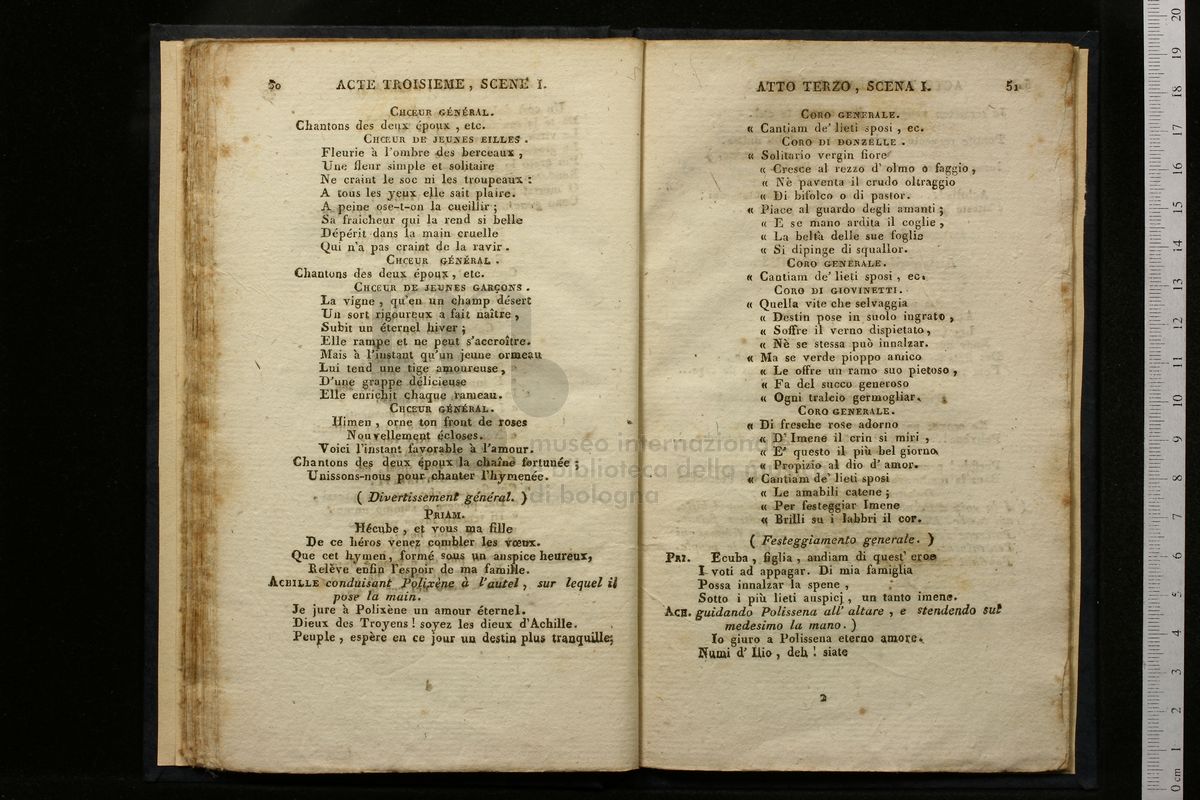 50 ACTE TROISIEME, SCENE I.
CHŒUR GÉNÉRAL.
Chantons des deux époux, etc.
CHŒUR DE JEUNES FILLES.
Fleurie à l'ombre des berceaux,
Une fleur simple et solitaire
Ne craint le soc ni les troupeaux :
A tous les yeux elle sait plaire.
A peine ose-t-on la cueillir ;
Sa fraicheur qui la rend si belle
Dépérit dans la main cruelle
Qui n'a pas craint de la ravir.
CHŒUR GÉNÉRAL.
Chantons des deux époux, etc.
CHŒUR DE JEUNES GARÇONS.
La vigne, qu'en un champ désert
Un sort rigoureux a fait naître,
Subit un éternel hiver ;
Elle rampe et ne peut s'accroître.
Mais à l'instant qu'un jeune ormeau
Lui tend une tige amoureuse,
D'une grappe délicieuse
Elle enrichit chaque rameau.
CHŒUR GÉNÉRAL.
Himen, orne ton front de roses
Nouvellement écloses.
Voici l'instant favorable à l'amour.
Chantons des deux époux la chaîne fortunée ;
Unissons-nous pour chanter l'hymenée.
( Divertissement général. )
PRIAM.
Hécube, et vous ma fille
De ce héros venez combler les vœux.
Que cet hymen, formé sous un auspice heureux,
Relève enfin l'espoir de ma famille.
ACHILLE conduisant Polixène à l'autel, sur lequel il
pose la main.
Je jure à Polixène un amour éternel.
Dieux des Troyens ! soyez les dieux d'Achille.
Peuple, espère en ce jour un destin plus tranquille;
ATTO TERZO, SCENA I. 51
CORO GENERALE.
« Cantiam de' lieti sposi, ec.
CORO DI DONZELLE.
« Solitario vergin fiore
« Cresce al rezzo d' olmo o faggio,
« Nè paventa il crudo oltraggio
« Di bifolco o di pastor.
« Piace al guardo degli amanti ;
« E se mano ardita il coglie,
« La beltà delle sue foglie
« Si dipinge di squallor.
CORO GENERALE.
« Cantiam de' lieti sposi, ec.
CORO DI GIOVINETTI.
« Quella vite che selvaggia
« Destin pose in suolo ingrato,
« Soffre il verno dispietato,
« Nè se stessa può innalzar.
« Ma se verde pioppo amico
« Le offre un ramo suo pietoso,
« Fa del succo generoso
« Ogni tralcio germogliar.
CORO GENERALE.
« Di fresche rose adorno
« D' Imene il crin si miri,
« E' questo il più bel giorno
« Propizio al dio d' amor.
« Cantiam de' lieti sposi
« Le amabili catene ;
« Per festeggiar Imene
« Brilli su i labbri il cor.
( Festeggiamento generale. )
PRI. Ecuba, figlia, andiam di quest' eroe
I voti ad appagar. Di mia famiglia
Possa innalzar la spene,
Sotto i più lieti auspicj, un tanto imene.
ACH. guidando Polissena all' altare, e stendendo sul
medesimo la mano. )
Io giuro a Polissena eterno amore.
Numi d' Ilio, deh ! siate
2
museo internazionale
e biblioteca della musica
di bologna
0 cm 1 2 3 4 5 6 7 8 9 10 11 12 13 14 15 16 17 18 19 20